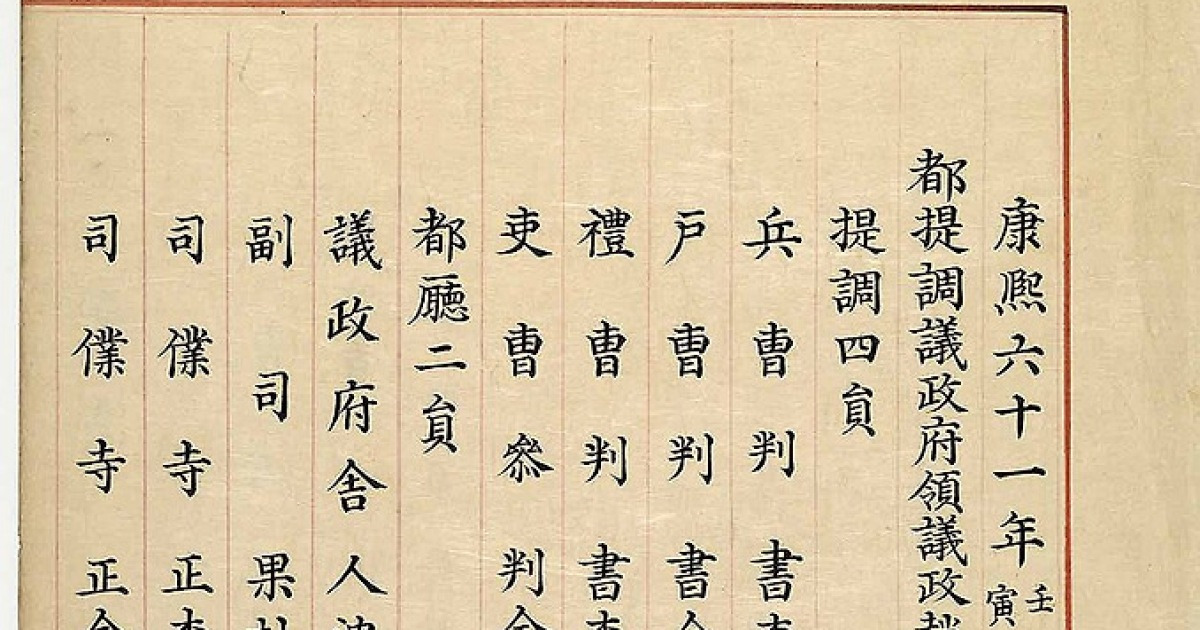 康熙六十一年壬寅
都提調議政府領議政
提調四貟
兵曺判書
戶曺判書
禮曺判書
吏曺叅判
都廳二貟
議政府舍人
副司果
司僕寺正
司僕寺正